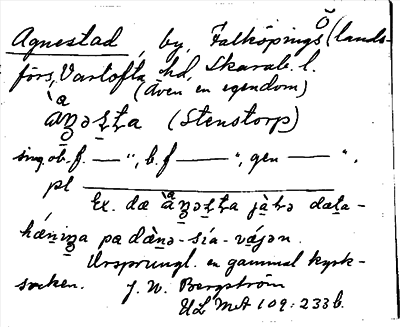 Agnestad, by, Falköpings Ö (lands-
förs, Vartofta hd, Skarab. l.
(även en egendom)
(Stenstorp)
sing. ob. f. —", b. f —", gen —".
pl
Ex. dæ
pa dànə-sía-væjən.
Ursprungl. en gammal kyrk-
socken. J. W. Bergström
ULMA 109:233 b.